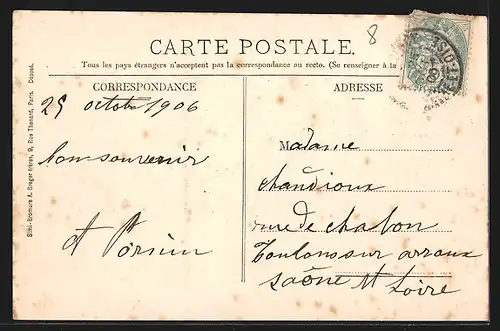 8
CARTE POSTALE.
Tous les pays étrangers n'acceptent pas la correspondance au recto. (Se renseigner à la
CORRESPONDANCE
ADRESSE
25 octobre 1906
bon souvenir
Madame
chandioux
rue de chalon
Toulon sur arroux
saône et Loire
Simi-Bromure A. Breger frères, 9, Rue Thénard, Paris. Déposé.